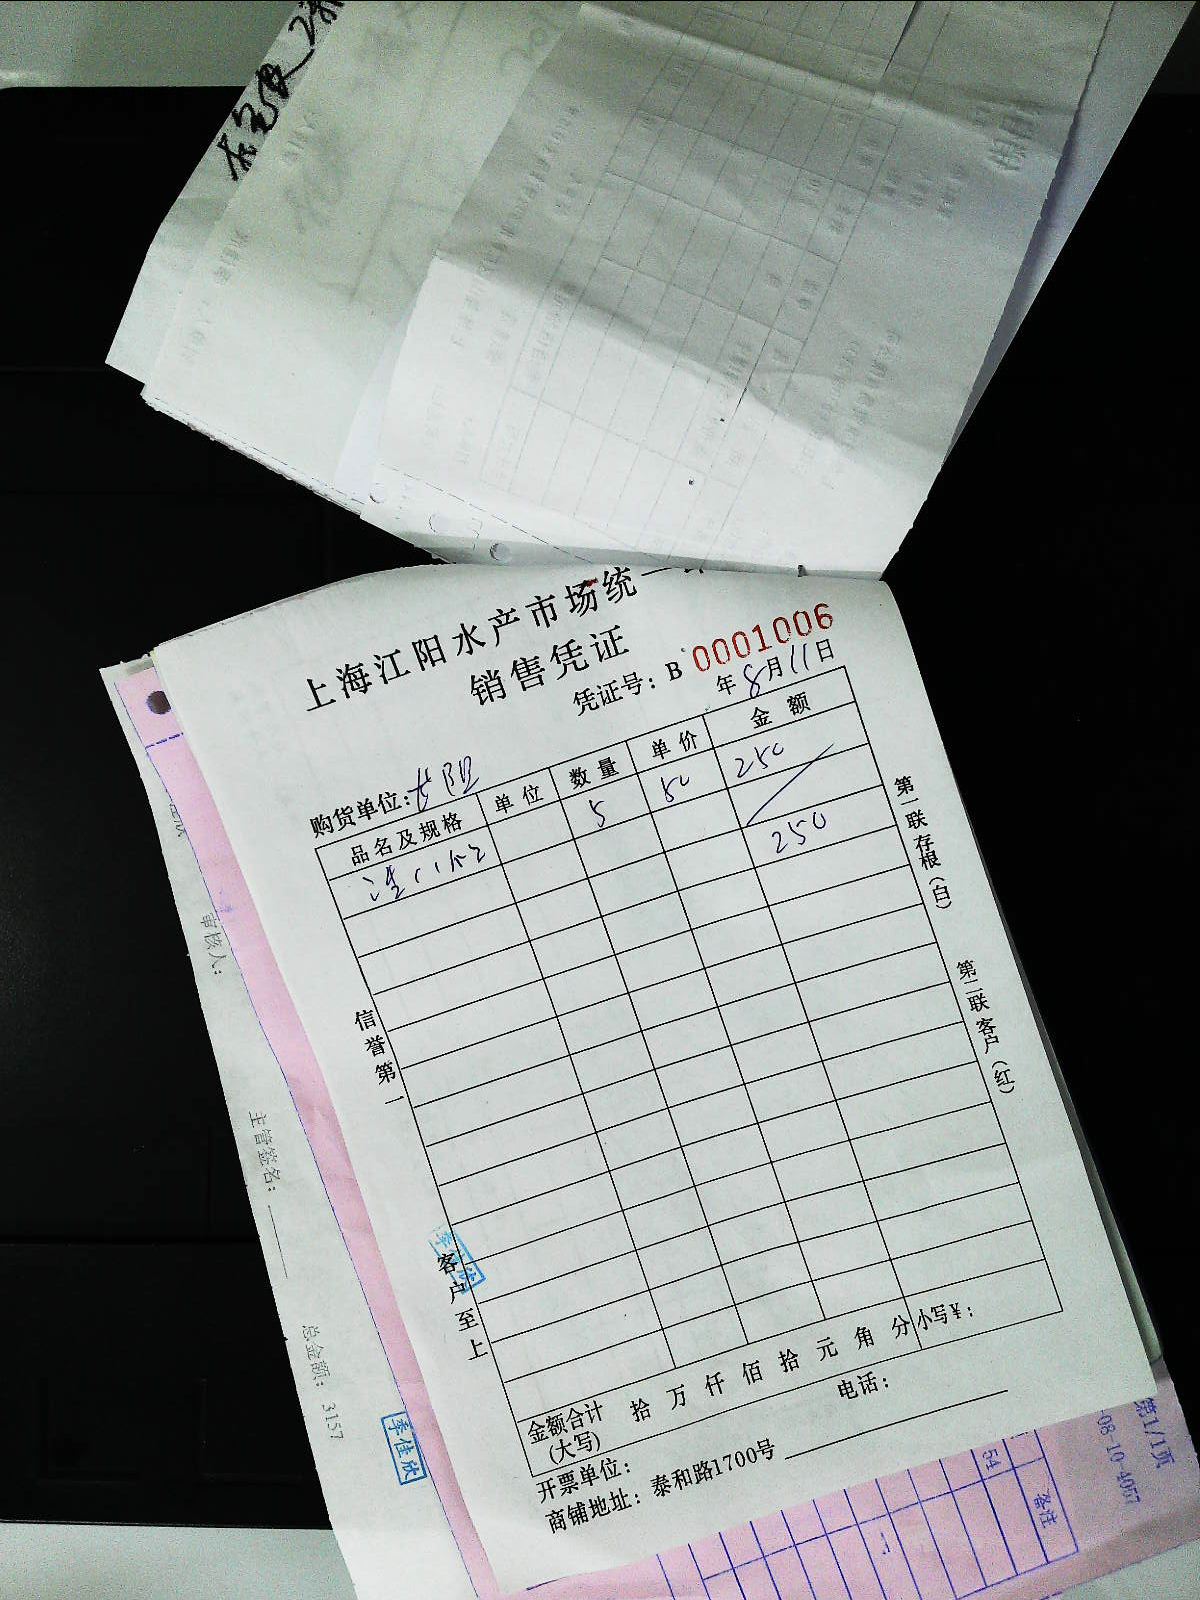 上海江阳水产市场统一
销售凭证
凭证号：B 0001006
年8月11日
购货单位：
品名及规格 单位 数量 单价 金额
5 50 250
250
信誉第一
客户至上
第一联存根（白）
第二联客户（红）
金额合计（大写） 拾 万 仟 佰 拾 元 角 分 小写¥：
开票单位： 电话：
商铺地址：泰和路1700号
审核人：
主管签名：
总金额：3157
季佳欣
第1/1页
-08-10-4057
54
备注